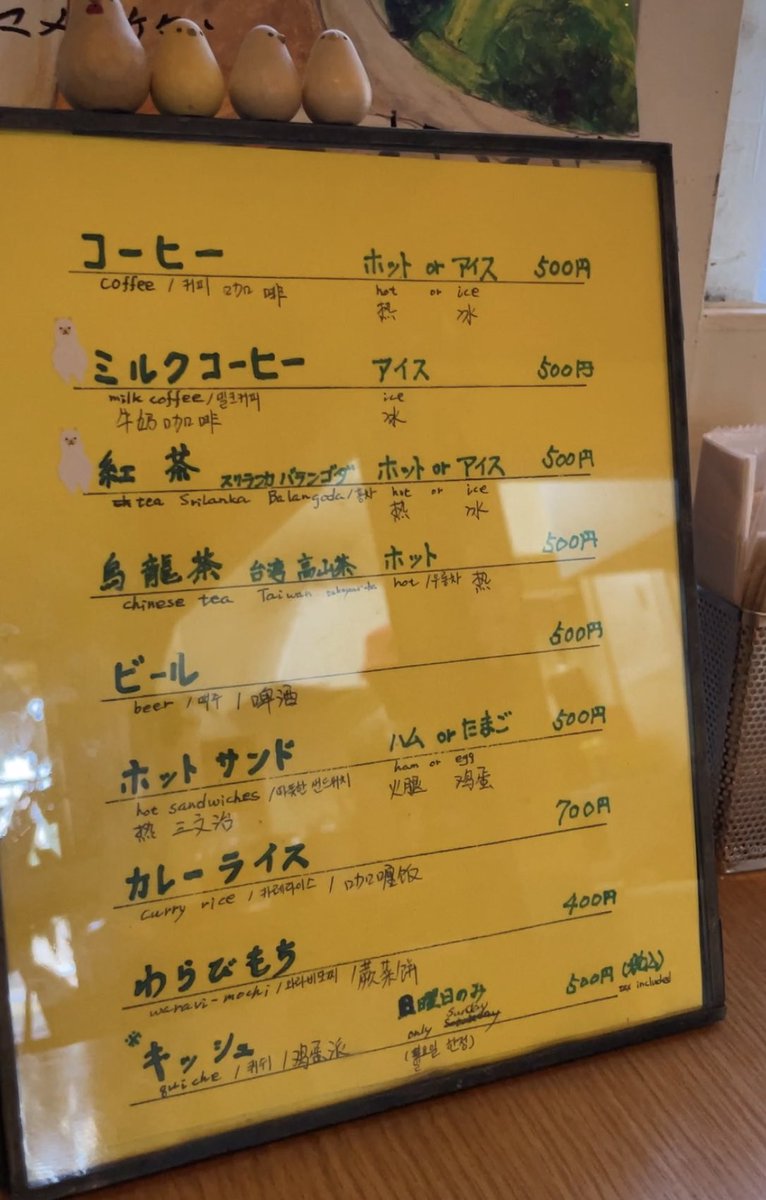 コーヒー ホット or アイス 500円
coffee / 커피 咖啡 hot or ice
热 冰
ミルクコーヒー アイス 500円
milk coffee / 밀크커피 ice
牛奶咖啡 冰
紅茶 スリランカ バランゴダ ホット or アイス 500円
tea Srilanka Balangoda / 홍차 hot or ice
热 冰
烏龍茶 台湾 高山茶 ホット 500円
chinese tea Taiwan hot / 우롱차 热
ビール 500円
beer / 맥주 / 啤酒
ホットサンド ハム or たまご 500円
hot sandwiches / 따뜻한 샌드위치 ham or egg
热 三文治 火腿 鸡蛋
カレーライス 700円
curry rice / 카레라이스 / 咖喱饭
わらびもち 400円
waravi-mochi / 와라비모찌 / 蕨菜饼
※キッシュ 日曜日のみ 500円 (税込)
quiche / 퀴쉬 / 鸡蛋派 only Sunday tax included